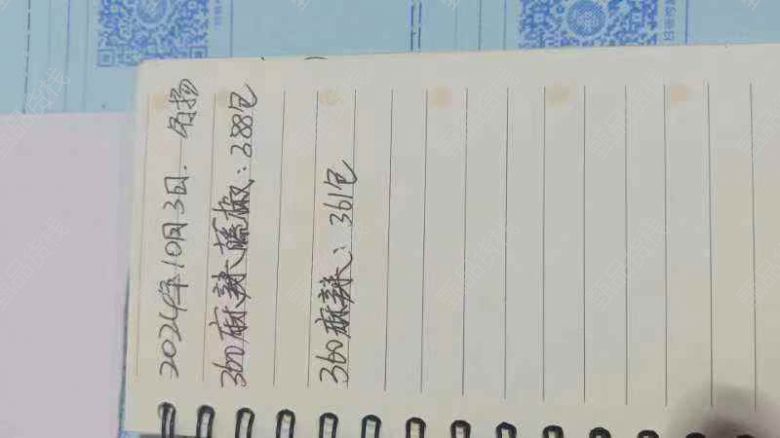 2024年10月3日. 名扬
360麻辣藤椒:388包
360麻辣:361包